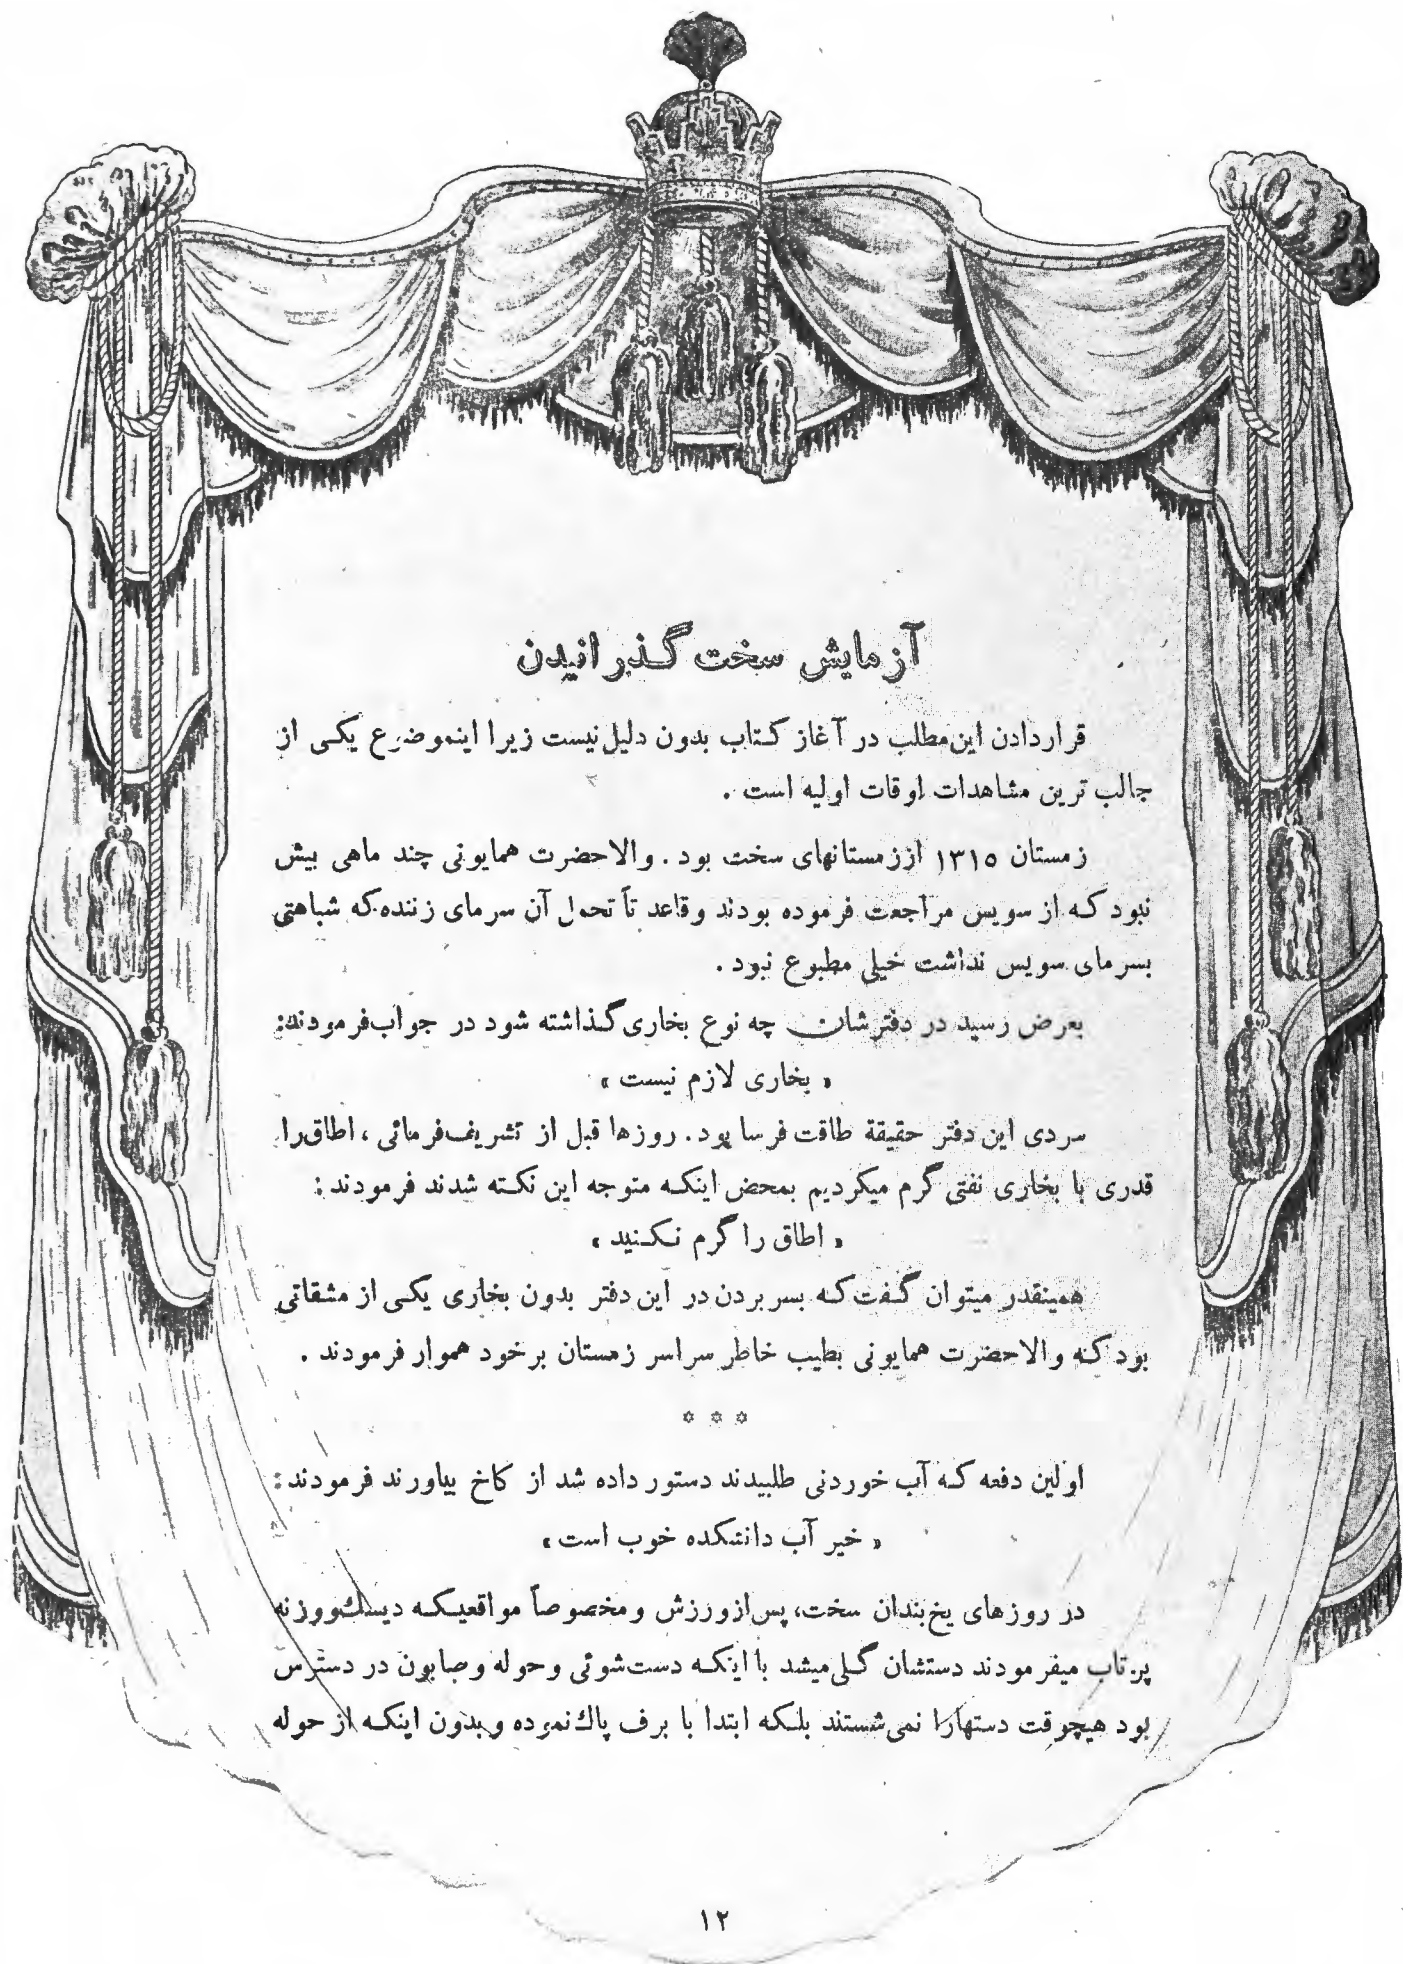 آزمایش سخت گذرانیدن
قراردادن این‌مطلب در آغاز کتاب بدون دلیل‌نیست زیرا اینموضوع یکی از
جالب ترین مشاهدات اوقات اولیه است .
زمستان ۱۳۱۵ اززمستانهای سخت بود . والاحضرت همایونی چند ماهی بیش
نبود که از سویس مراجعت فرموده بودند وقاعدتاً تحمل آن سرمای زننده‌که شباهتی
بسرمای سویس نداشت خیلی مطبوع نبود .
بعرض رسید در دفترشان چه نوع بخاری گذاشته شود در جواب‌فرمودند:
« بخاری لازم نیست »
سردی این دفتر حقیقة طاقت فرسا بود . روزها قبل از تشریف‌فرمائی ، اطاق‌را
قدری با بخاری نفتی گرم میکردیم بمحض اینکه متوجه این نکته شدند فرمودند :
« اطاق را گرم نکنید »
همینقدر میتوان گفت‌که بسر بردن در این دفتر بدون بخاری یکی از مشقاتی
بود که والاحضرت همایونی بطیب خاطر سراسر زمستان برخود هموار فرمودند .
* * *
اولین دفعه که آب خوردنی طلبیدند دستور داده شد از کاخ بیاورند فرمودند :
« خیر آب دانشکده خوب است »
در روزهای یخ‌بندان سخت، پس‌ازورزش و مخصوصاً مواقعیکه دیسك‌ووزنه
پرتاب میفرمودند دستشان گلی‌میشد با اینکه دست‌شوئی وحوله وصابون در دسترس
بود هیچوقت دستهارا نمی‌شستند بلکه ابتدا با برف پاك‌نموده و بدون اینکه از حوله
۱۲